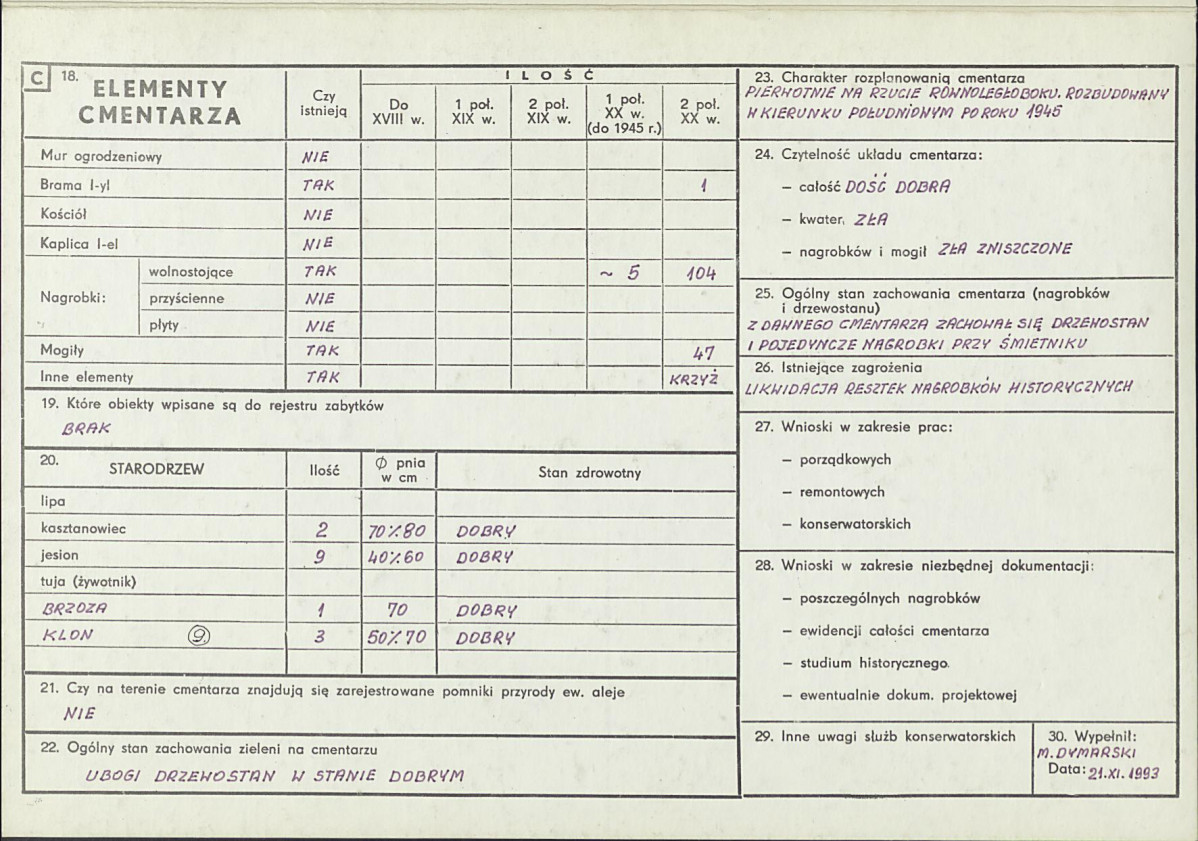 C 18. ELEMENTY CMENTARZA
Czy istnieją
ILOŚĆ
Do XVIII w.
1 poł. XIX w.
2 poł. XIX w.
1 poł. XX w. (do 1945 r.)
2 poł. XX w.
Mur ogrodzeniowy NIE
Brama I-yl TAK 1
Kościół NIE
Kaplica I-el NIE
Nagrobki:
wolnostojące TAK ~ 5 104
przyścienne NIE
płyty NIE
Mogiły TAK 47
Inne elementy TAK KRZYŻ
19. Które obiekty wpisane są do rejestru zabytków
BRAK
20. STARODRZEW Ilość Ø pnia w cm Stan zdrowotny
lipa
kasztanowiec 2 70٪80 DOBRY
jesion 9 40٪60 DOBRY
tuja (żywotnik)
BRZOZA 1 70 DOBRY
KLON 9. 3 50٪70 DOBRY
21. Czy na terenie cmentarza znajdują się zarejestrowane pomniki przyrody ew. aleje
NIE
22. Ogólny stan zachowania zieleni na cmentarzu
UBOGI DRZEWOSTAN W STANIE DOBRYM
23. Charakter rozplanowania cmentarza
PIERWOTNIE NA RZUCIE RÓWNOLEGŁOBOKU. ROZBUDOWANY
W KIERUNKU POŁUDNIOWYM PO ROKU 1945
24. Czytelność układu cmentarza:
– całość DOŚĆ DOBRA
– kwater. ZŁA
– nagrobków i mogił ZŁA ZNISZCZONE
25. Ogólny stan zachowania cmentarza (nagrobków
i drzewostanu)
Z DAWNEGO CMENTARZA ZACHOWAŁ SIĘ DRZEWOSTAN
I POJEDYNCZE NAGROBKI PRZY ŚMIETNIKU
26. Istniejące zagrożenia
LIKWIDACJA RESZTEK NAGROBKÓW HISTORYCZNYCH
27. Wnioski w zakresie prac:
– porządkowych
– remontowych
– konserwatorskich
28. Wnioski w zakresie niezbędnej dokumentacji:
– poszczególnych nagrobków
– ewidencji całości cmentarza
– studium historycznego.
– ewentualnie dokum. projektowej
29. Inne uwagi służb konserwatorskich
30. Wypełnił:
M. DYMARSKI
Data: 21.XI.1993